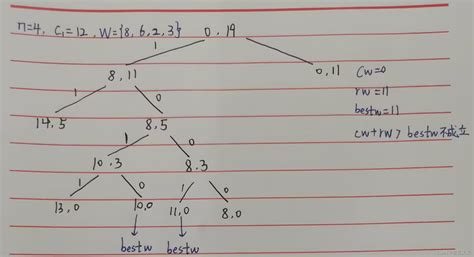 n=4, C₁=12, W={8,6,2,3}
0,19
1
0
8,11
0,11
cw=0
rw=11
bestw=11
cw+rw>bestw不成立
1
0
14,5
8,5
1
0
10,3
8,3
1
0
1
0
13,0
10,0
11,0
8,0
bestw
bestw